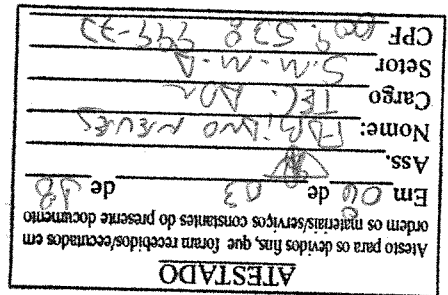 ATESTADO
Atesto para os devidos fins, que foram recebidos/executados em
ordem os materiais/serviços constantes do presente documento
Em 06 de 03 de 18
Ass.
Nome: FABIANO NEVES
Cargo TEC. ADM
Setor S.M.M.A
CPF 009.538